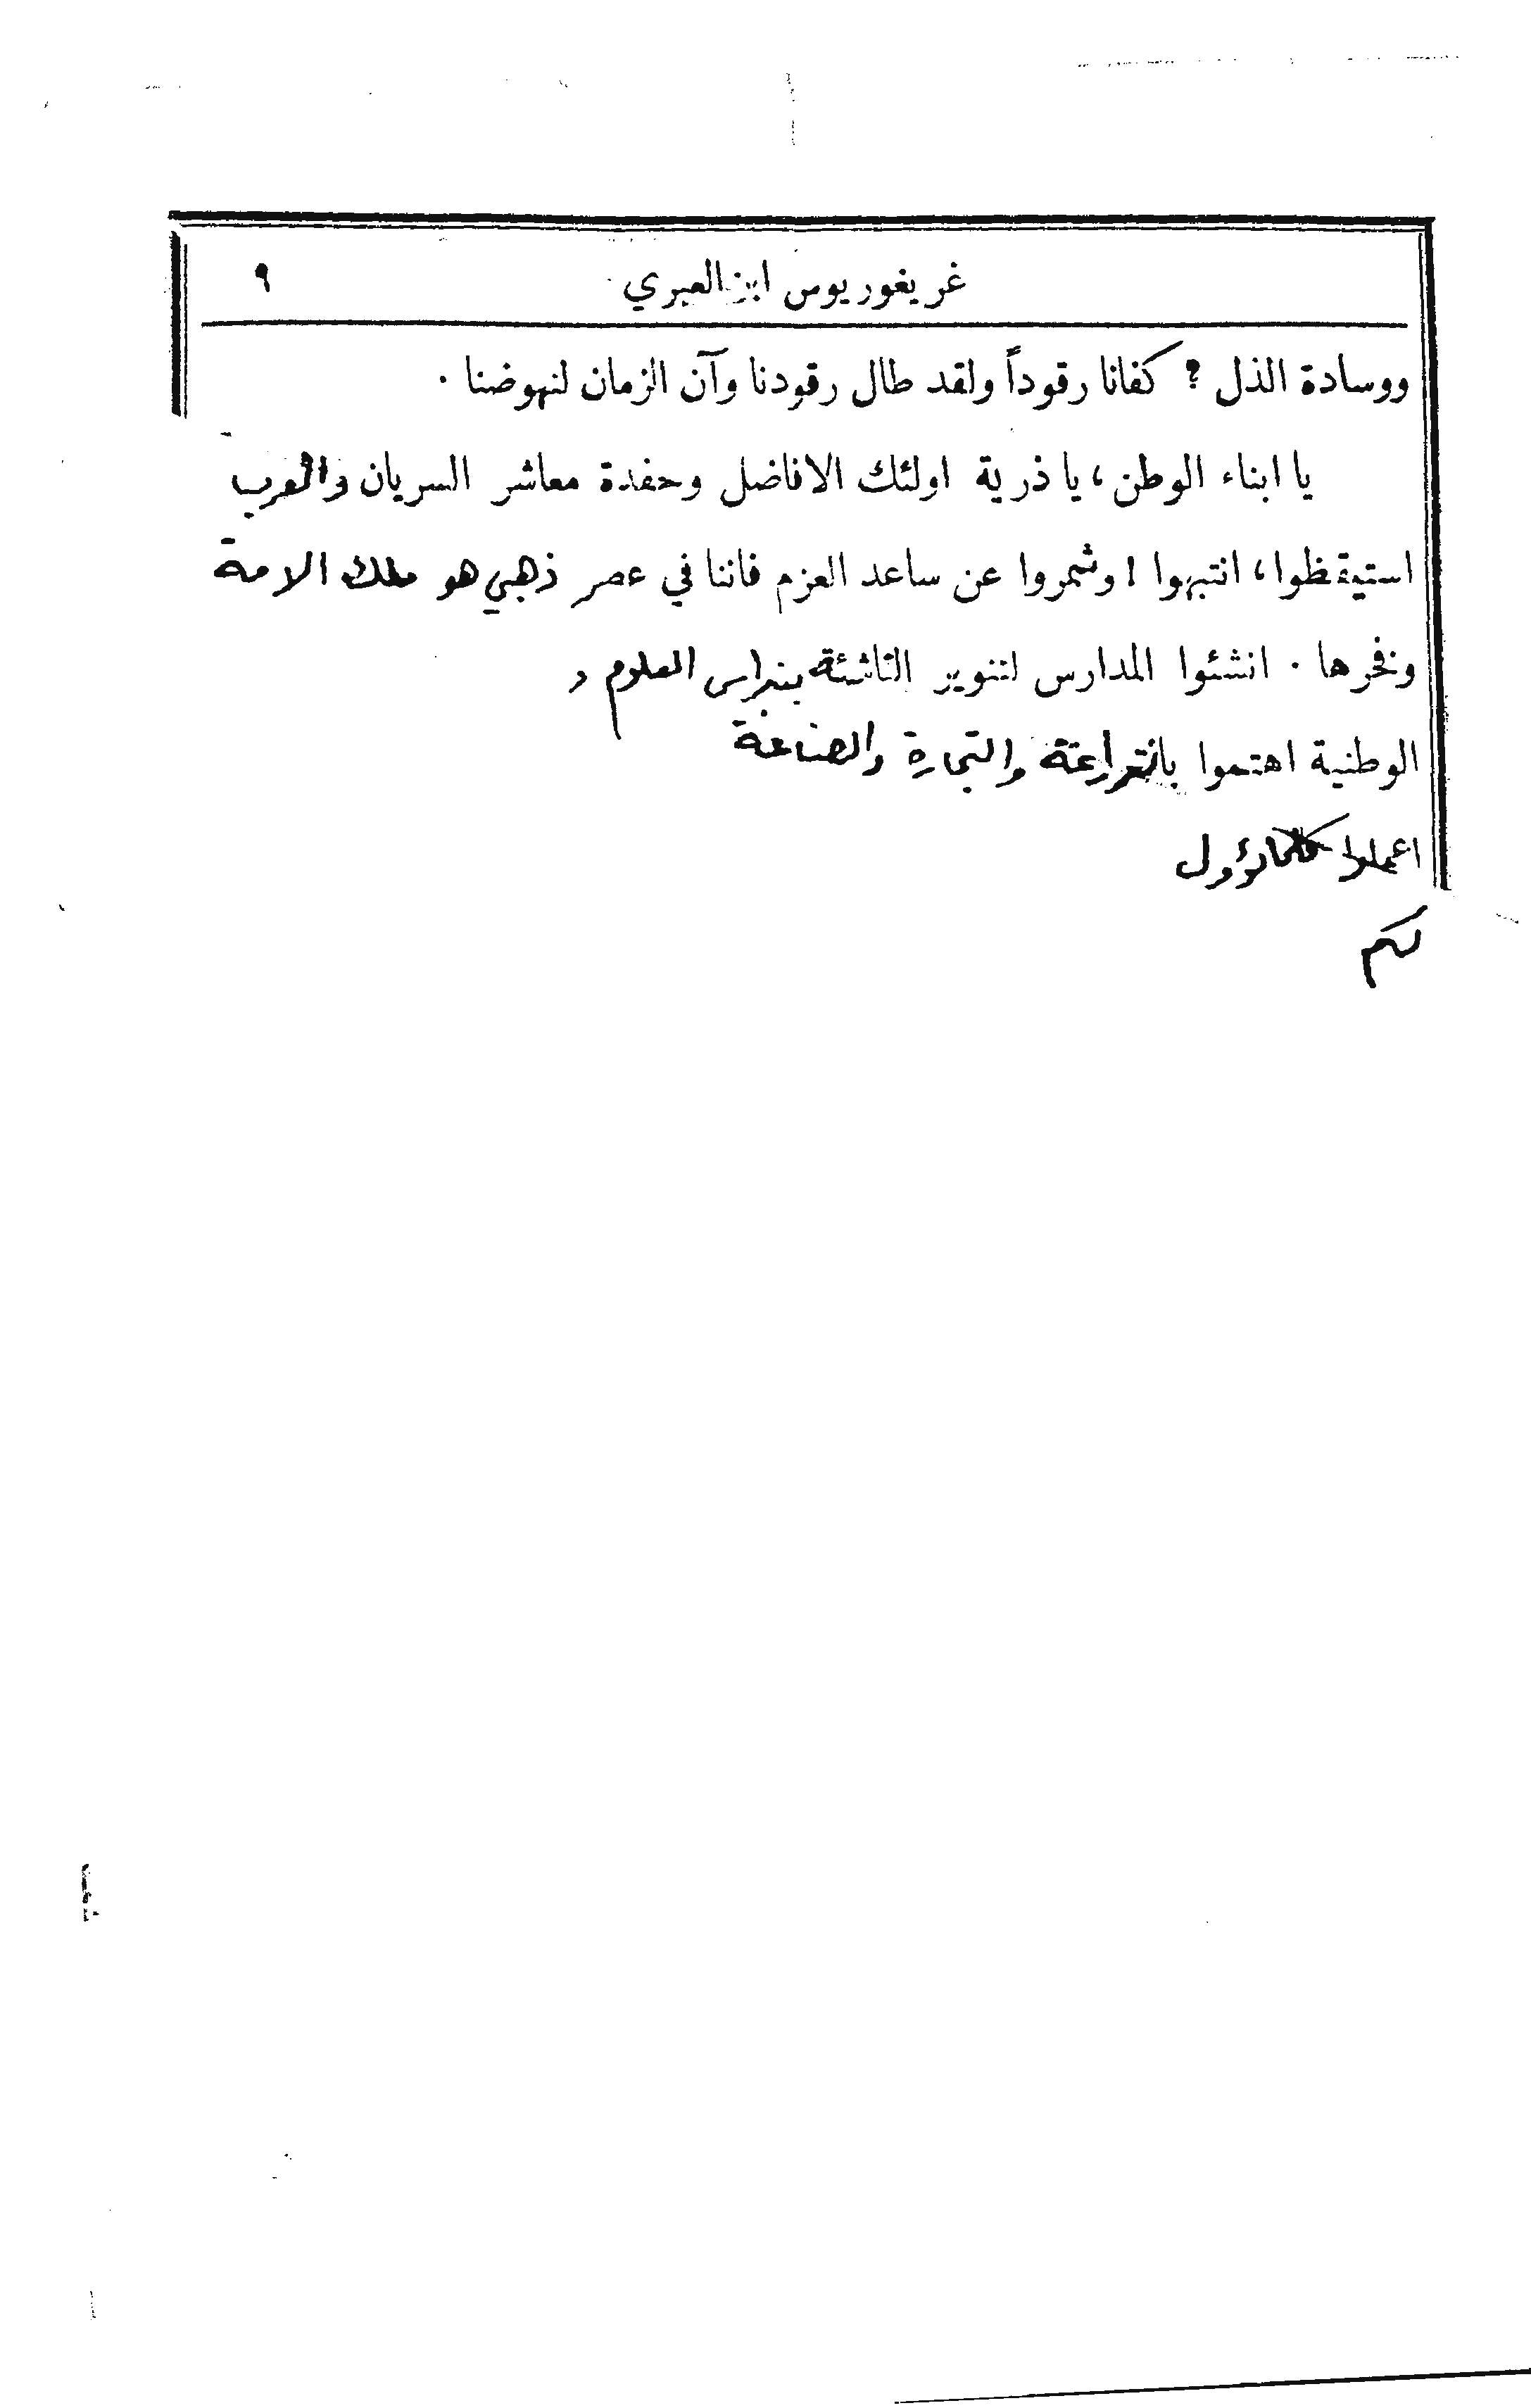 غريغوريوس ابن العبري ٩
ووسادة الذل ؟ كفانا رقوداً ولقد طال رقودنا وآن الزمان لنهوضنا ٠
يا ابناء الوطن ، يا ذرية اولئك الافاضل وحفدة معاشر السريان والعرب
استيقظوا ، انتبهوا ! وشمروا عن ساعد العزم فاننا في عصر ذهبي هو ملك الامة
وفخرها ٠ انشئوا المدارس لتنوير الناشئة بنبراس العلوم و
الوطنية اهتموا والتجارة والصناعة
اعملوا
لكم